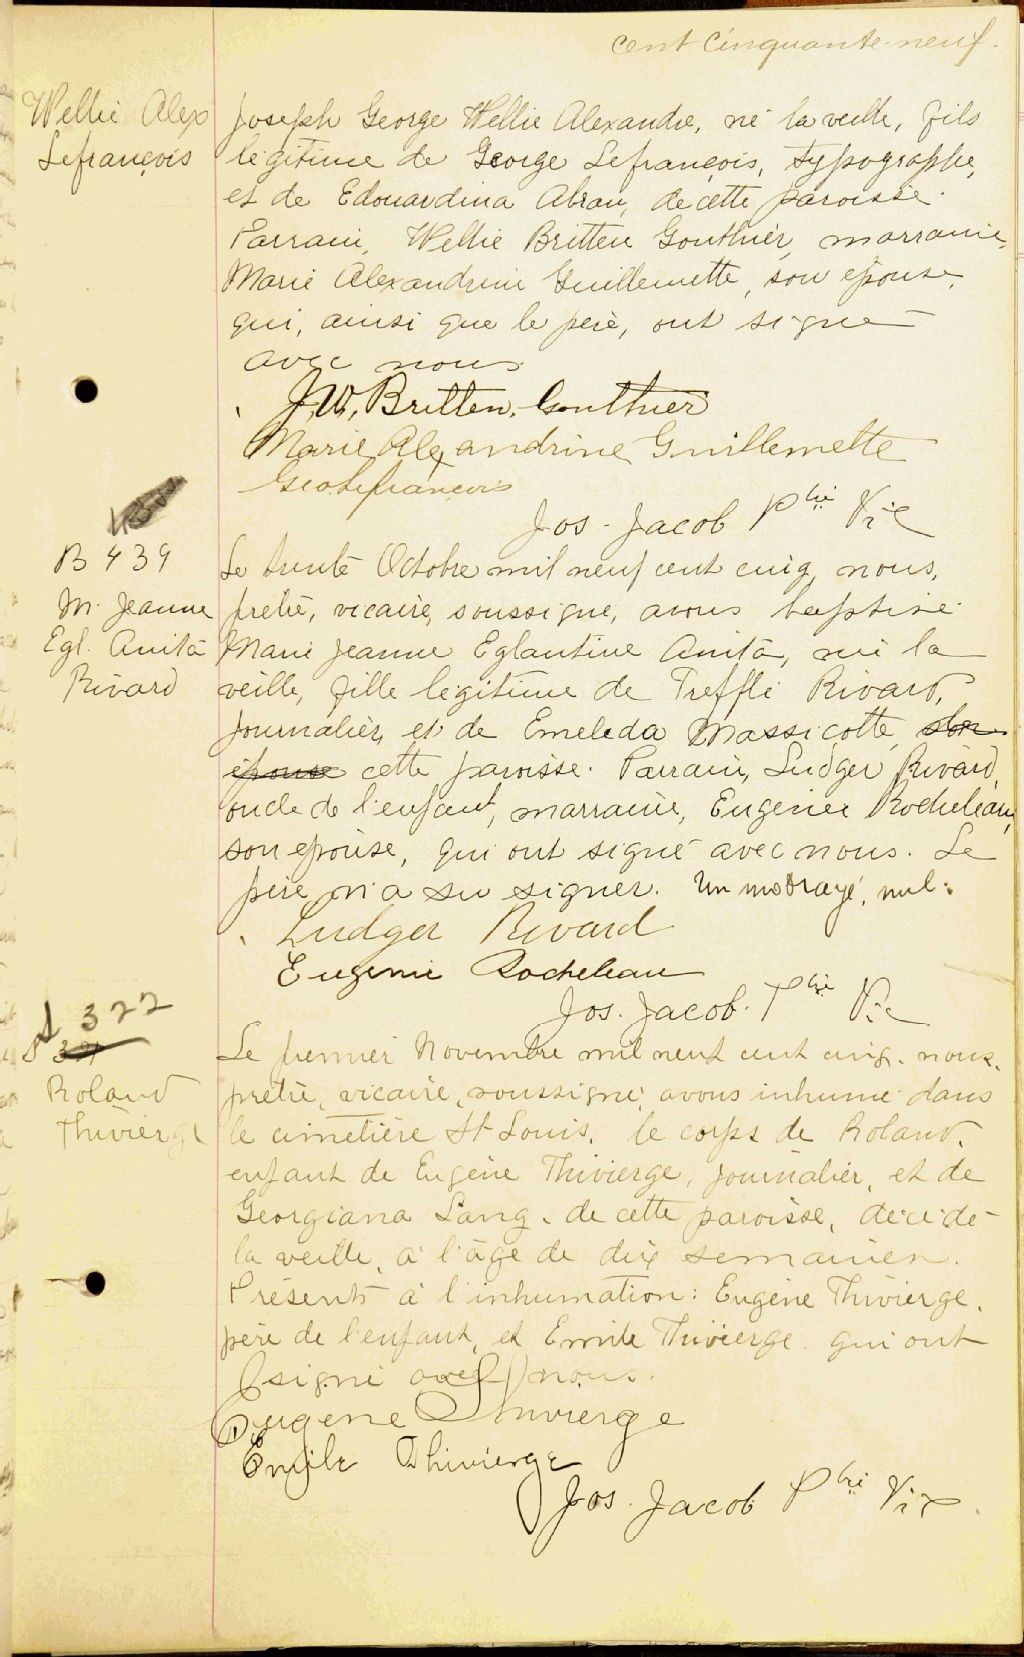 cent cinquante-neuf.
Wellie Alex
Lefrançois
Joseph George Wellie Alexandre, né la veille, fils
légitime de George Lefrançois, typographe,
et de Edouardina Abran, de cette paroisse.
Parrain, Wellie Britten Gouthier, marraine,
Marie Alexandrine Guillemette, son épouse,
qui, ainsi que le père, ont signé
avec nous
J.W. Britten. Gouthier
Marie Alexandrine Guillemette
Geo Lefrançois
Jos. Jacob Ptre Vic
B 439
M. Jeanne
Egl. Anita
Rivard
Le trente Octobre mil neuf cent cinq, nous,
prêtre, vicaire, soussigné, avons baptisé
Marie Jeanne Eglantine Anita, née la
veille, fille légitime de Trefflé Rivard,
journalier, et de Emeleda Massicotte, son
épouse cette paroisse. Parrain, Ludger Rivard,
oncle de l'enfant, marraine, Eugénie Rocheleau,
son épouse, qui ont signé avec nous. Le
père n'a su signer. Un mot rayé, nul.
Ludger Rivard
Eugenie Rocheleau
Jos. Jacob. Ptre Vic
S 322
S 321
Roland
Thivierge
Le premier Novembre mil neuf cent cinq. nous,
prêtre, vicaire, soussigné, avons inhumé dans
le cimetière St Louis, le corps de Roland,
enfant de Eugène Thivierge, journalier, et de
Georgiana Lang, de cette paroisse, décédé
la veille, à l'âge de dix semaines.
Présents à l'inhumation: Eugène Thivierge,
père de l'enfant, et Emile Thivierge qui ont
signé avec nous.
Eugene Thivierge
Emile Thivierge
Jos. Jacob Ptre Vic